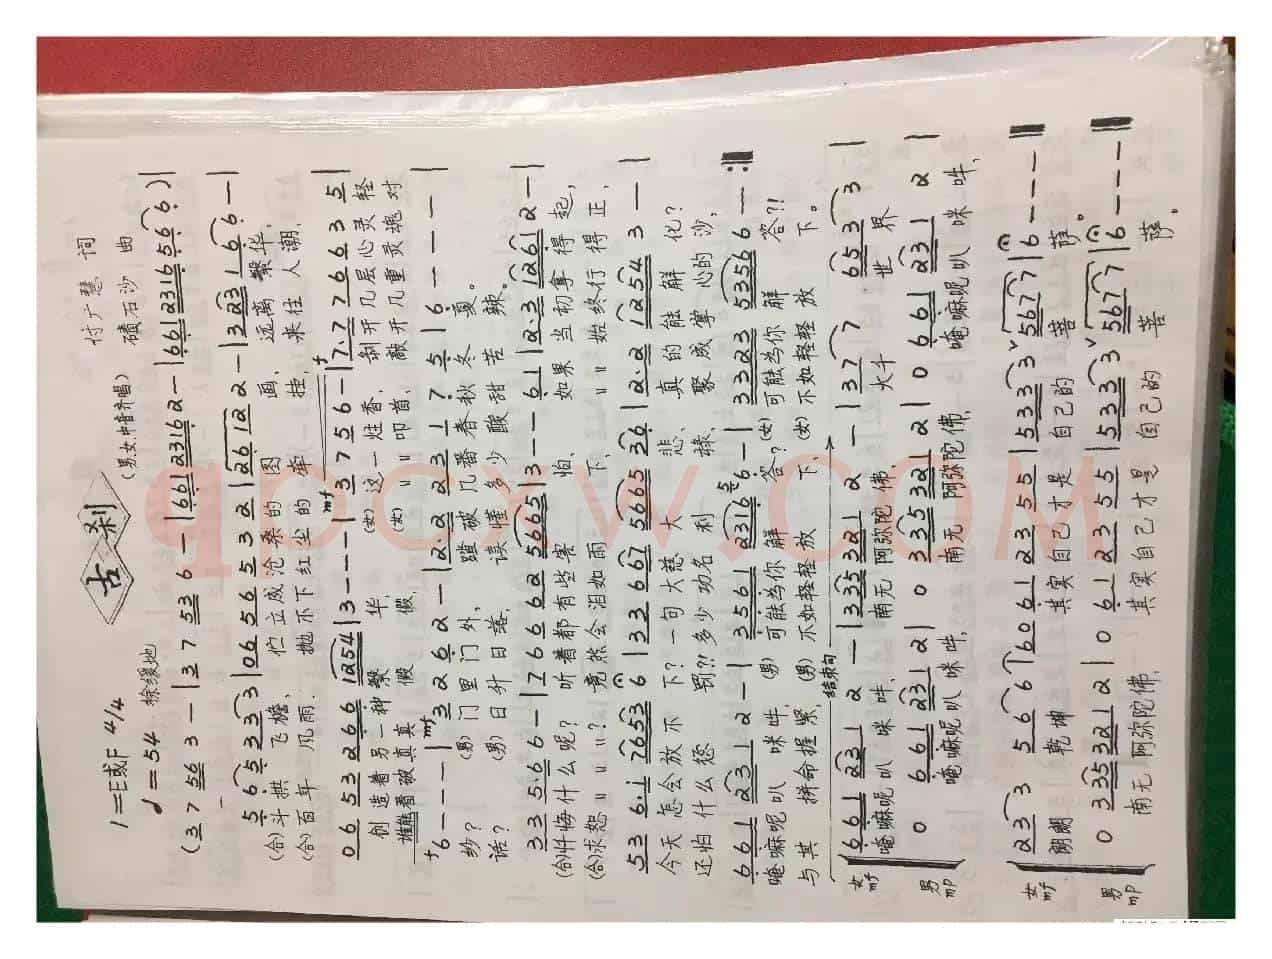 古刹
(男女中音齐唱)
付广慧 词
碛石沙 曲
1=E或F 4/4
♩=54 徐缓地
(3 7 56 3 — | 3 7 53 6 — | 661 2316 2 — | 661 2316 556 6 ) |
5 6 5 3 3 3 | 06 56 5 3 2 | 26 12 2 — | 3 23 1 6 6 — |
(合)斗拱 飞檐, 伫立成沧桑的 图 画, 远离 繁华,
(合)百年 风雨. 抛亦下红尘的 牵 挂, 来往 人潮,
0 6 53 266 1254 | 3 — — — | 3 7 5 6 — | 7·7 7 6 6 3 5 |
创造着另一种繁 华, (女)这一炷香, 剝开几层心灵轻
谁能看破真真假 假, (女) 〃 叩首, 敲开几重灵魂对
6 — — — | 3 2 6 2 — | 2·2 23 1 7 5 | 6 — — — |
纱? (男)门里门外, 蹬破几番春秋冬 夏。
话? (男)日升日落, 读懂多少酸甜苦 辣。
33 5·6 6 — | 7 6 6 6 2 5665 | 3 — — 61 | 2·3 1261 2 — |
(合)忏悔什么呢? 听着都有些害 怕、 如果 当初拿得 起,
(合)求怨〃〃〃? 竟然会泪如雨 下、 〃〃 始终行得 正,
53 6·i 7653 6 | 33 667 5665 36 | 2·2 1254 3 — |
今天 怎会放不 下? 一句大慈 大 悲、 真的 能解 化?
还怕 什么惩 罚?! 多少功名 利 禄、 聚成 掌心的 沙,
661 231 2 — | 3561 2316 6 — | 3323 5356 6 — :‖
唵嘛呢叭 咪吽, (男)可能为你解 答? (女)可能为你解 答?!
与其 拼命握紧, (男)不如轻轻放 下、 (女)不如轻轻放 下。
结束句
女 mf 661 231 2 — | 335 321 2 — | 37 7 653 3 |
唵嘛呢叭 咪吽, 南无 阿弥陀佛, 大千 世界
男 mp 0 661 231 2 | 0 335 321 2 | 0 661 231 2
唵嘛呢叭 咪吽, 南无 阿弥陀佛, 唵嘛呢叭 咪吽,
女 mf 23 3 56 6 | 60 61 23 55 | 533 3 567 7 | 6 — — — ‖
朗朗 乾坤 其实 自己才是 自己的 菩 萨。
男 mp 0 335 321 2 | 0 61 23 55 | 533 3 567 7 | 6 — — — ‖
南无 阿弥陀佛, 其实 自己才是 自己的 菩 萨。
qpcxw.COM